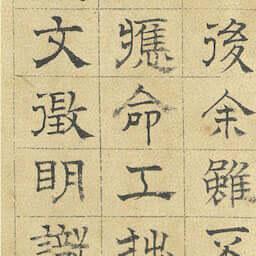 後余雖不
應命工拙
文徵明識